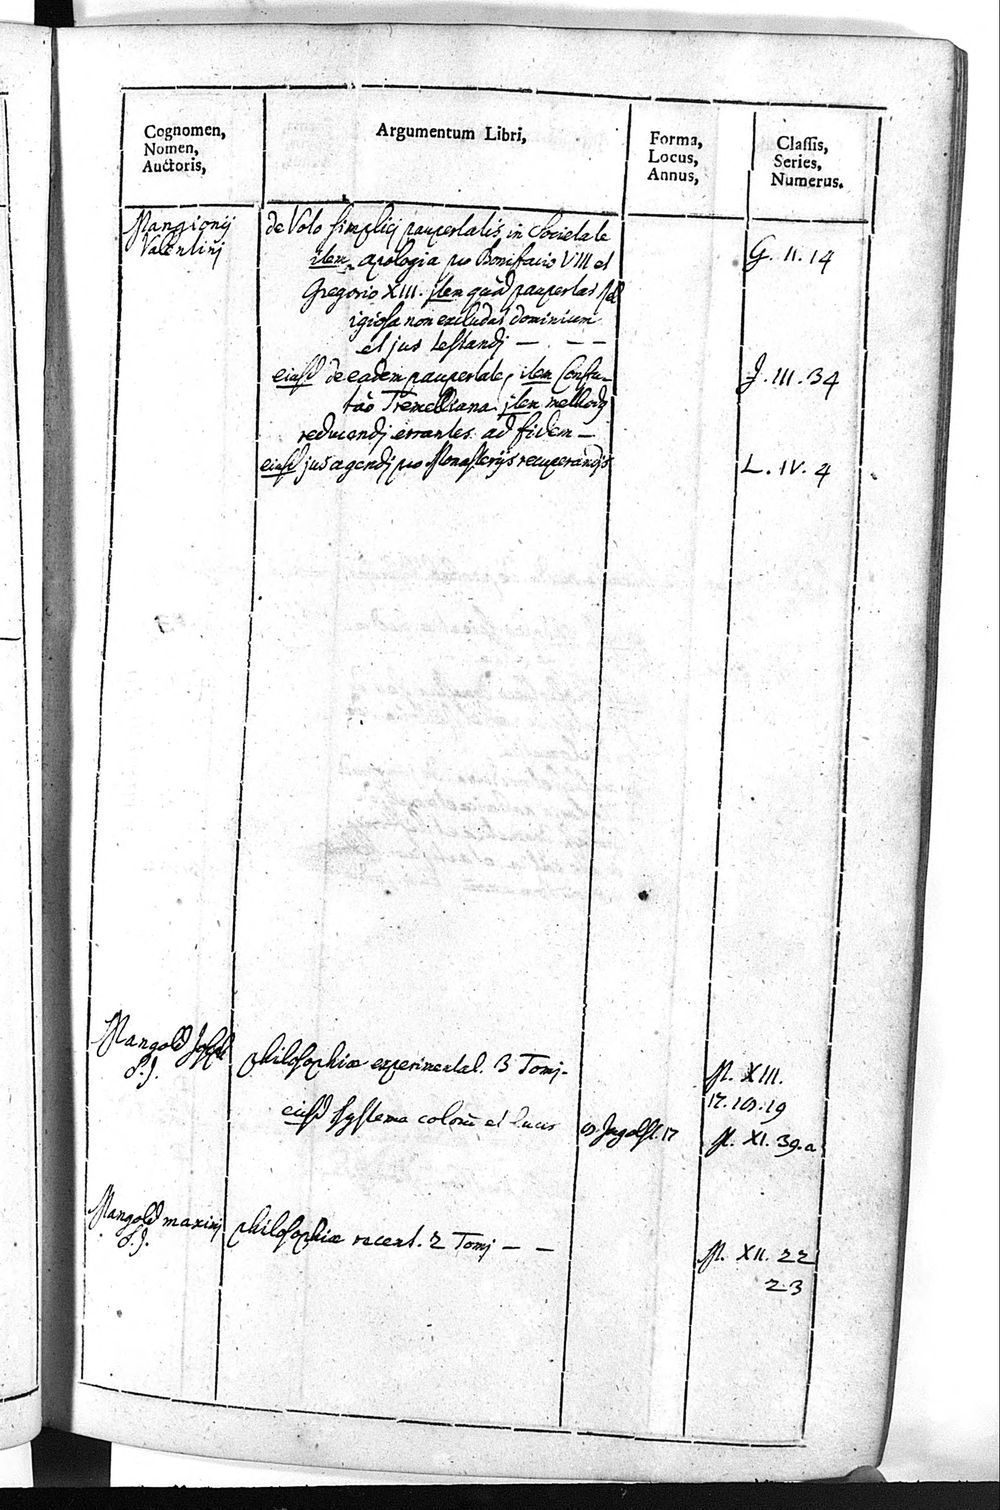 Cognomen,
Nomen,
Auctoris,
Argumentum Libri,
Forma,
Locus,
Annus,
Classis,
Series,
Numerus.
Mangionij
Valentinj
de Voto simplicj paupertatis in Societate
item apologia pro Bonifacio VIII et
Gregorio XIII. item quòd paupertas Rel
igiosa non excludat dominium
et jus testandj — . — —
G. II. 14
eiusd de eadem paupertate, item Confu-
tāo Tremelliana item methodj
reducendj errantes ad fidem —
J. III. 34
eiusd jus agendj pro Monasterijs recuperandjs
L. IV. 4
Mangold Joseph
S.J.
philosophiæ experimental. 3 Tomj.
M. XIII.
17. 18. 19
eiusd systema colorū et lucis
8. Ingolst. 17
M. XI. 39.a
Mangold maximj
S.J.
philosophiæ recent. 2 Tomj — —
M. XII. 22
23